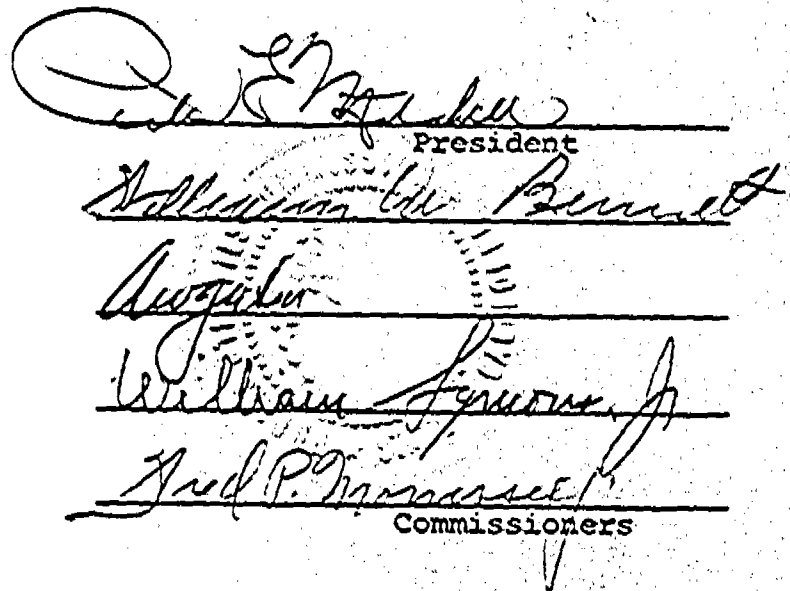 Peter E. Mitchell
President
William M. Bennett
William Symons, Jr
Fred P. Morrissey
Commissioners